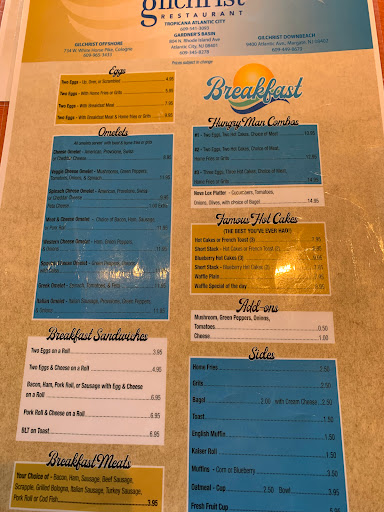 gilchrist
RESTAURANT
TROPICANA ATLANTIC CITY
609-541-3003
GILCHRIST OFFSHORE
734 W. White Horse Pike, Cologne
609-965-3433
GARDNER'S BASIN
804 N. Rhode Island Ave
Atlantic City, NJ 08401
609-345-8278
GILCHRIST DOWNBEACH
9400 Atlantic Ave, Margate, NJ
Prices subject to change
Eggs
Two Eggs - Up, Over, or Scrambled
Two Eggs - With Home Fries or Grits
Two Eggs - With Breakfast Meat
Two Eggs - With Breakfast Meat & Home Fries or Grits
Omelets
All omelets served with toast & home fries or grits
Cheese Omelet - American, Provolone, Swiss
or Cheddar Cheese
Veggie Cheese Omelet - Mushrooms, Green Peppers,
Tomatoes, Onions, & Spinach
Spinach Cheese Omelet - American, Provolone, Swiss
or Cheddar Cheese
Feta Cheese
Meat & Cheese Omelet - Choice of Bacon, Ham, Sausage,
or Pork Roll
Western Cheese Omelet - Ham, Green Peppers,
& Onions
Cheese Omelet - Green Peppers,
& Onions
Greek Omelet - Spinach, Tomatoes, & Feta
Italian Omelet - Italian Sausage, Provolone, Green Peppers,
& Onions
Breakfast Sandwiches
Two Eggs on a Roll 3.95
Two Eggs & Cheese
on a Roll 4.95
Bacon, Ham, Pork Roll, or Sausage with Egg & Cheese
on a Roll 6.95
Pork Roll & Cheese on a Roll 6.95
BLT on Toast 6.95
Breakfast Meats
Your Choice of - Bacon, Ham, Sausage, Beef Sausage,
Scrapple, Grilled Bologna, Italian Sausage, Turkey Sausage,
Pork Roll or Cod Fish 3.95
Breakfast
Hungry Man Combos
#1 - Two Eggs, Two Hot Cakes, Choice of Meat 10.95
#2 - Two Eggs, Two Hot Cakes, Choice of Meat,
Home Fries or Grits
#3 - Three Eggs, Three Hot Cakes, Choice of Meat,
Home Fries or Grits 14.95
Nova Lox Platter - Cucumbers, Tomatoes,
Onions, Olives, with choice of Bagel 14.95
Famous Hot Cakes
(THE BEST YOU'VE EVER HAD!)
Hot Cakes or French Toast (3) 7.95
Short Stack - Hot Cakes or French Toast (2)
Blueberry Hot Cakes (3)
Short Stack - Blueberry Hot Cakes (2)
Waffle Plain
Waffle Special of the day
Add-ons
Mushroom, Green Peppers, Onions,
Tomatoes 0.50
Cheese 1.00
Sides
Home Fries 3.50
Grits 2.50
Bagel 2.00 with Cream Cheese 2.50
Toast 1.50
English Muffin 1.50
Kaiser Roll 1.50
Muffins - Corn or Blueberry 3.50
Oatmeal - Cup 2.50 Bowl 3.95
Fresh Fruit Cup 6.95